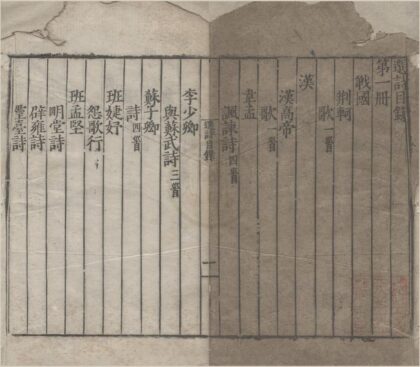 選詩目錄
第一冊
戰國
荆軻
歌一首
漢
漢高帝
歌一首
韋孟
諷諫詩四首
選詩目錄
一
李少卿
與蘇武詩三首
蘇子卿
詩四首
班婕妤
怨歌行
班孟堅
明堂詩
辟雍詩
靈臺詩